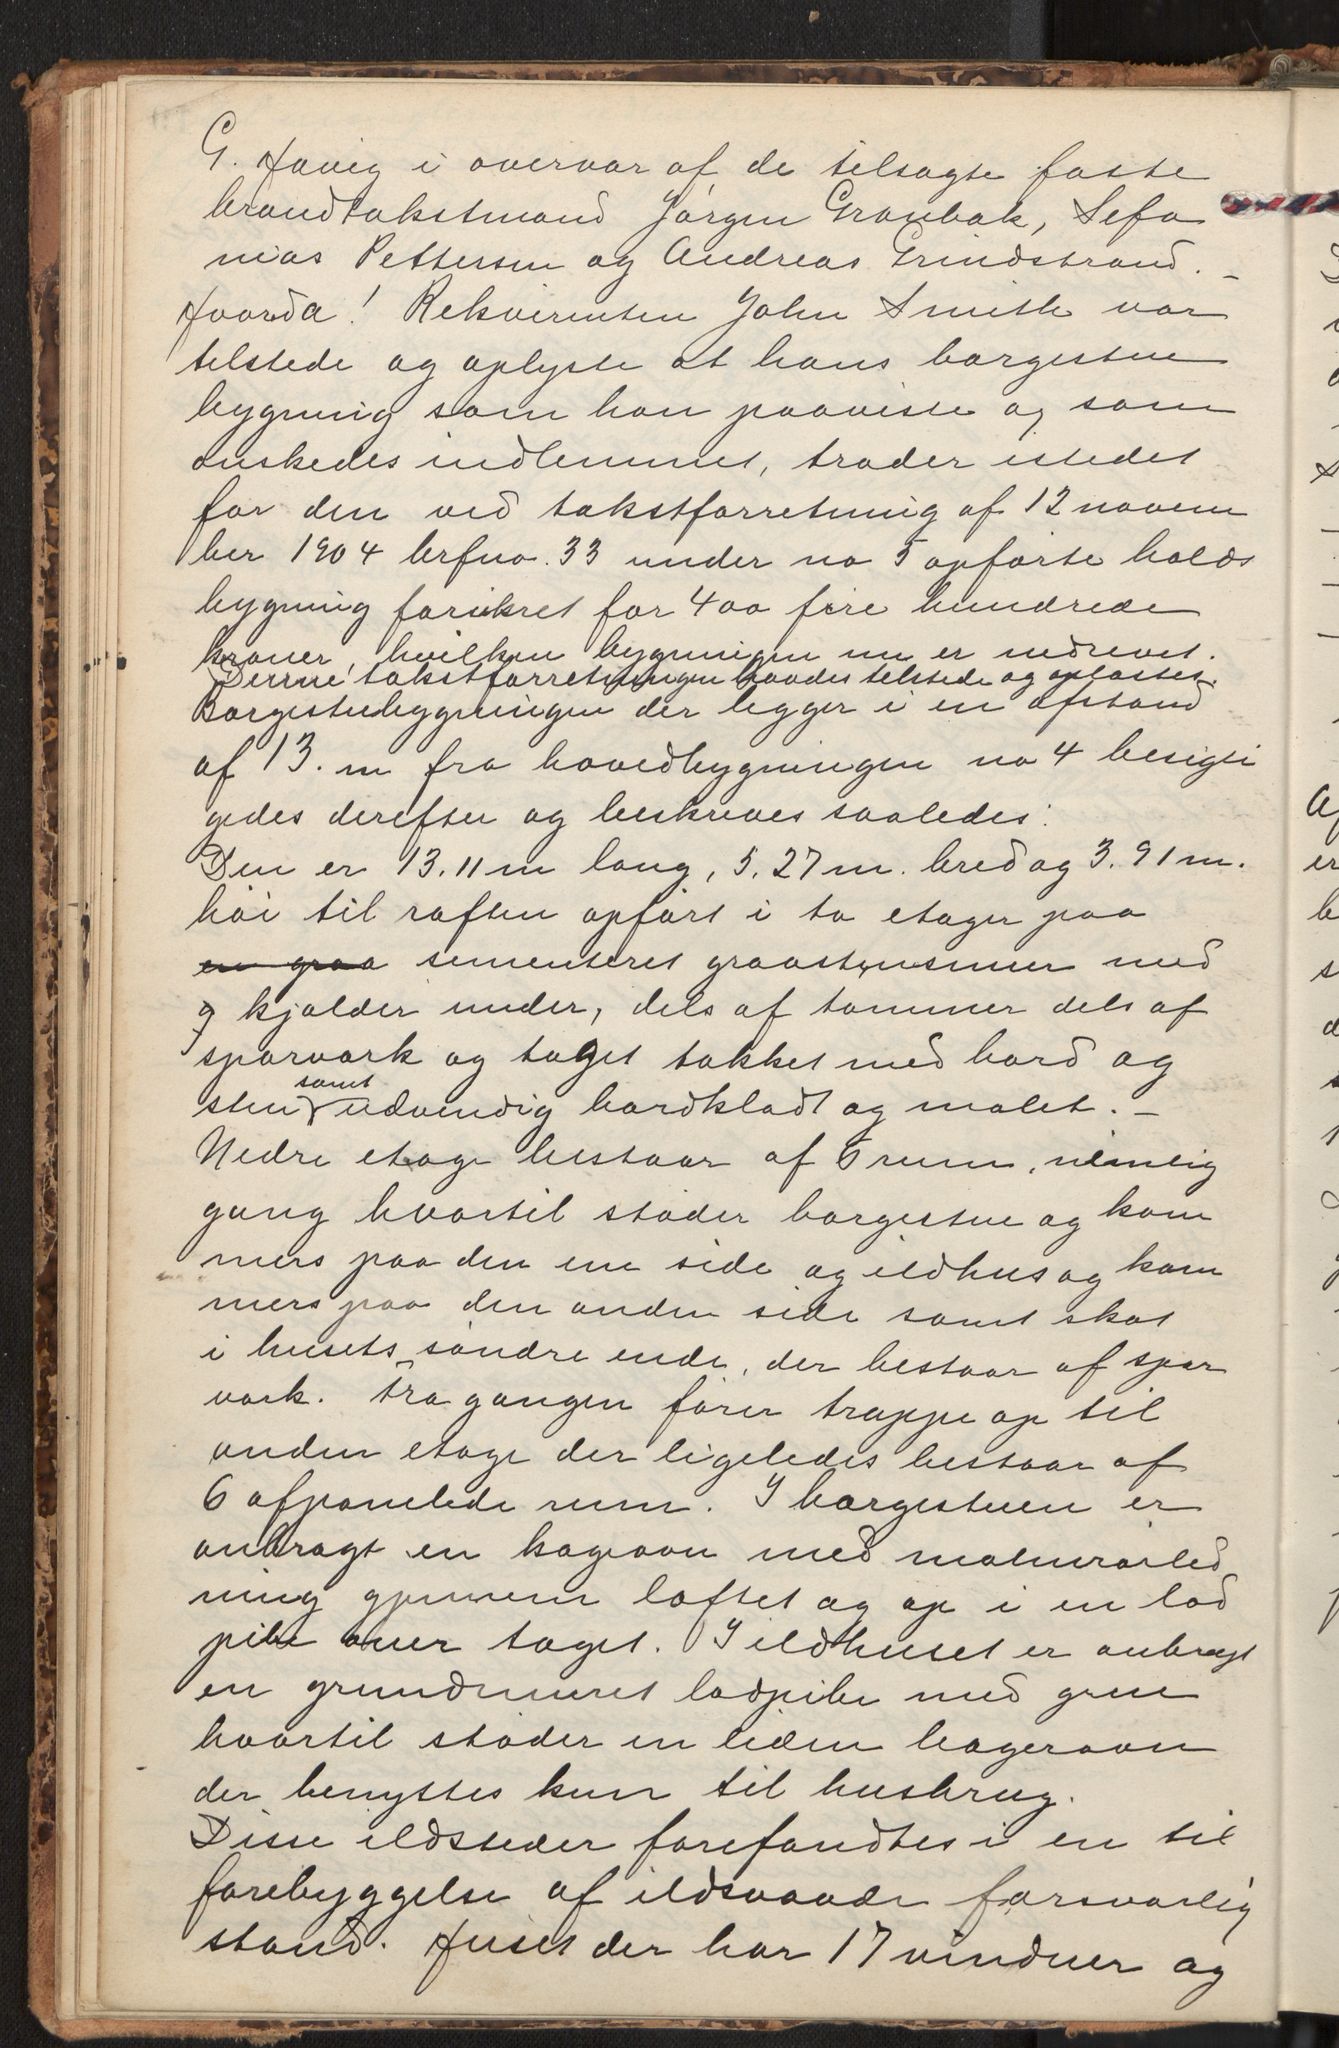 G. Havig i overvær af de tilsagte faste
brandtakstmænd Jørgen Grønbæk, Sefa
nias Pettersen og Andreas Grindstrand. –
Hvorda! Rekvirenten John Smith var
tilstede og oplyste at hans borgestue
bygning som han paaviste og som
ønskedes indlemmet, træder istedet
for den ved takstforretning af 12 novem
ber 1904 brfno. 33 under no 5 opførte halds
bygning forsikret for 400 fire hundrede
kroner, hvilken bygningen nu er nedrevet.
Denne takstforretningen havdes tilstede og oplæstes.
Borgestuebygningen der ligger i en afstand
af 13. m fra hovedbygningen no 4 besigti
gedes derefter og beskreves saaledes:
Den er 13.11 m lang, 5.27 m. bred og 3.91 m.
høi til raften opført i to etager paa
en graa sementeret graastensmur med
g kjælder under, dels af tømmer dels af
sparværk og taget tækket med bord og
sten samt udvendig bordklædt og malet. –
Nedre etage bestaar af 6 rum, nemlig
gang hvortil støder borgestue og kam
mers paa den ene side og ildhus og kam
mers paa den anden side samt skot
i husets søndre ende, der bestaar af spar
værk. Fra gangen fører trappe op til
anden etage der ligeledes bestaar af
6 afpanelede rum. I borgestuen er
anbragt en kogeovn med malmrørled
ning gjennem loftet og op i en lød
pibe over taget. I ildhuset er anbragt
en grundmuret lødpibe med grue
hvortil støder en liden bagerovn
der benyttes kun til husbrug.
Disse ildsteder forefandtes i en til
forebyggelse af ildsvaade forsvarlig
stand. Huset der har 17 vinduer og